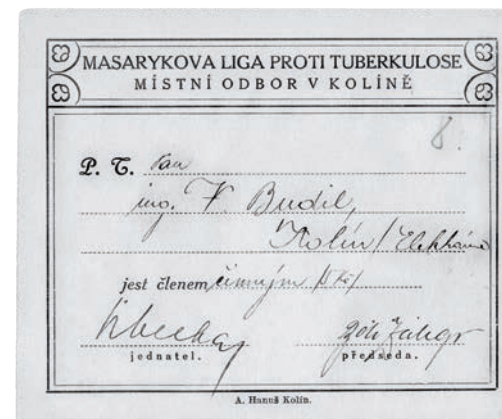 MASARYKOVA LIGA PROTI TUBERKULOSE
MÍSTNÍ ODBOR V KOLÍNĚ
8.
P. T. Pan
ing. V. Budil,
Kolín / Elektrárna
jest členem činným /5 Kč/
jednatel. předseda.
A. Hanuš Kolín.